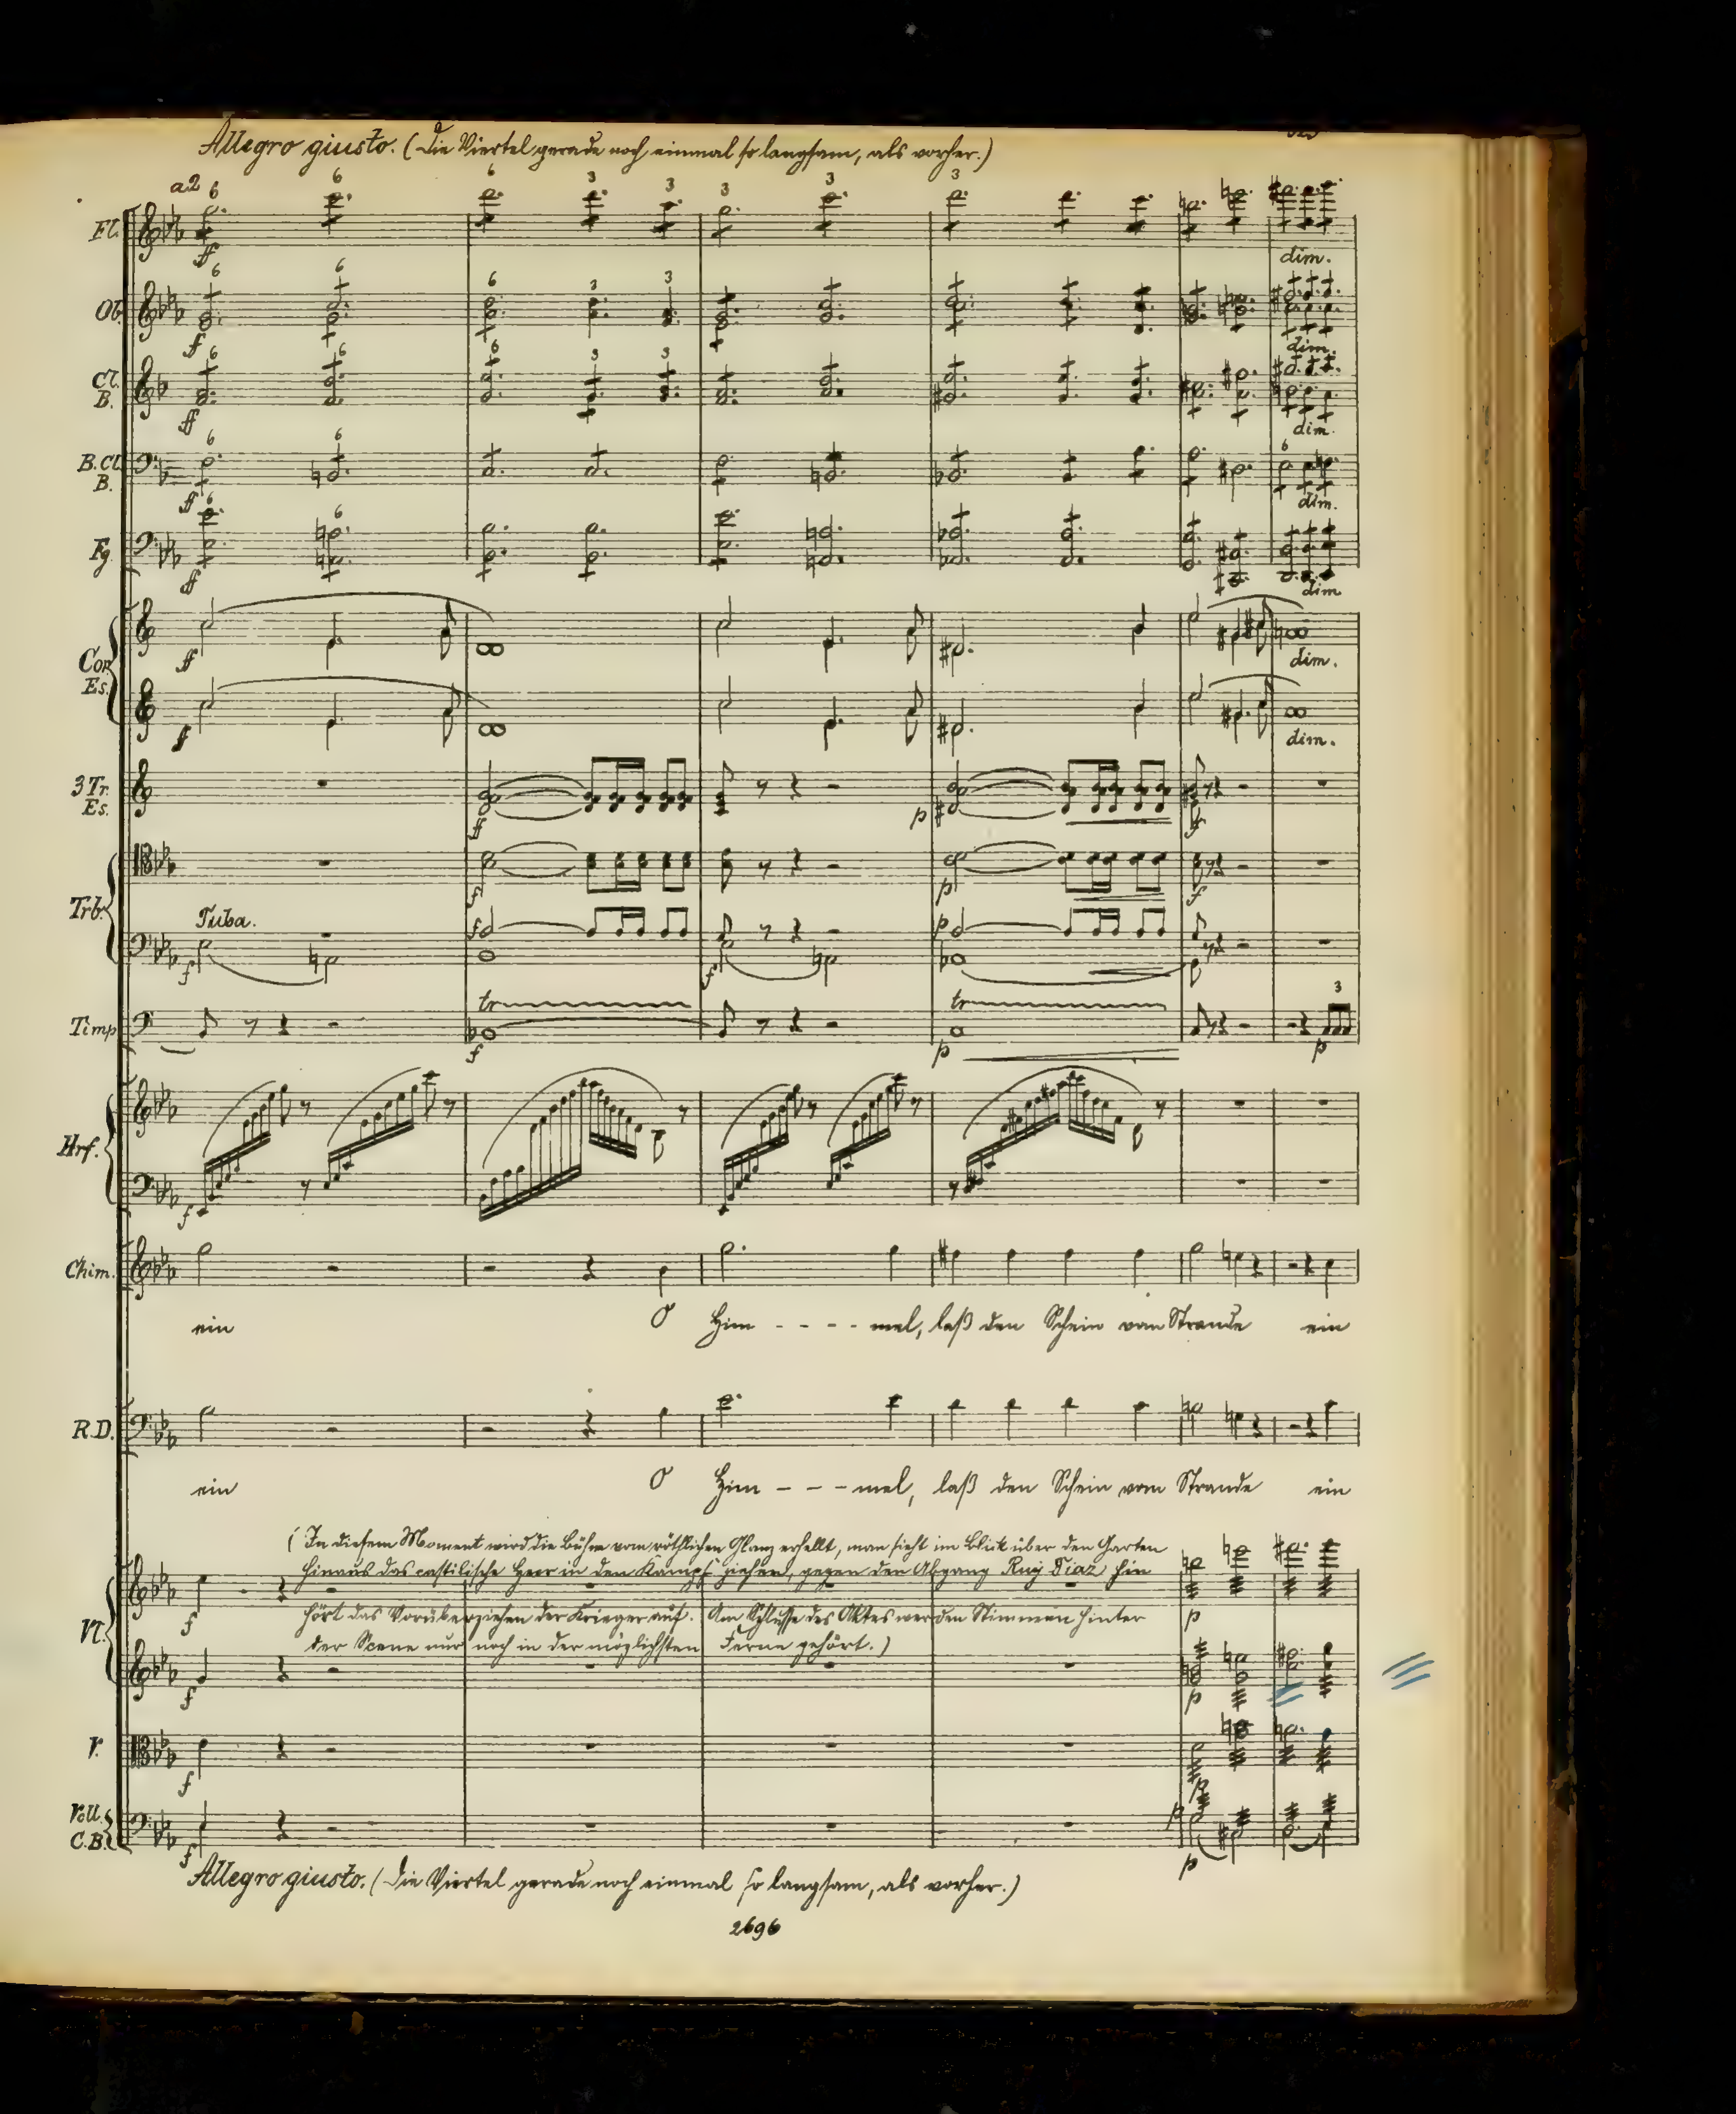 Allegro giusto. (Die Viertel gerade noch einmal so langsam, als vorher.)
a2 6 6 6 3 3 3 3 3
Fl.
ff
dim.
6 6 6 3 3
Ob.
f
dim.
6 6 6 3 3
Cl. B.
ff
dim.
6 6 6
B.Cl. B.
ff
dim.
6 6
Fg.
ff
dim
Cor. Es.
ff
dim.
ff
dim.
3 Tr. Es.
ff p f
Trb.
f p f
Tuba.
f f f p
Timp
tr tr 3
f p p
Hrf.
f
Chim.
ein O Him - - - - mel, laß den Schein vom Strande ein
R.D.
ein O Him - - - mel, laß den Schein vom Strande ein
(In diesem Moment wird die Bühne vom röthlichen Glanz erhellt, man sieht im Blick über den Garten
hinaus das castilische Heer in den Kampf ziehen, gegen den Abgang Ruy Diaz hin
hört das Vorüberziehen der Krieger auf. Am Schlusse des Aktes werden Stimmen hinter
der Scene nur noch in der möglichsten Ferne gehört.)
Vl.
f p
f p
V.
f p
Vcll. C.B.
f p p
Allegro giusto. (Die Viertel gerade noch einmal so langsam, als vorher.)
2696